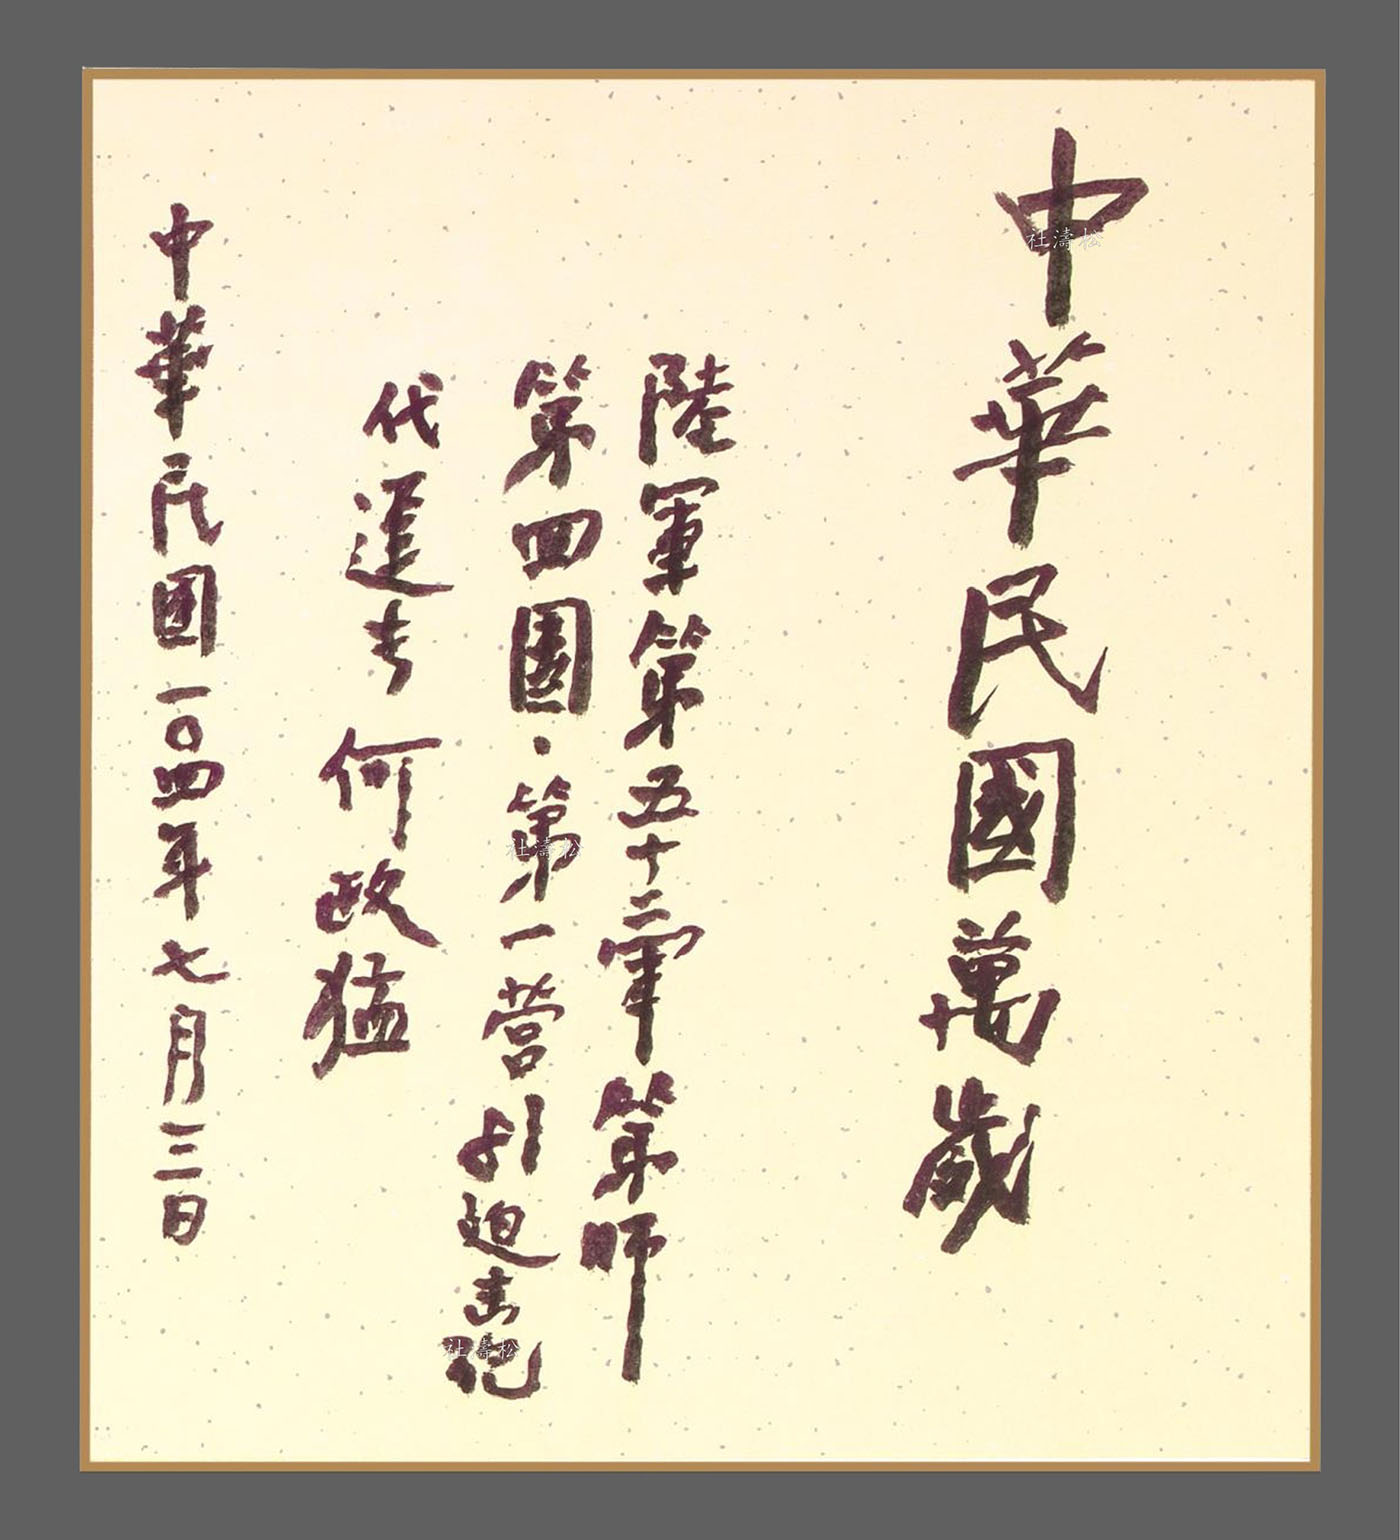 中華民國萬歲
陸軍第五十二軍第師
第四團·第一營引迫击砲
代運去 何政猛
中華民国一〇四年七月三日
杜濤松
杜濤松
杜濤松